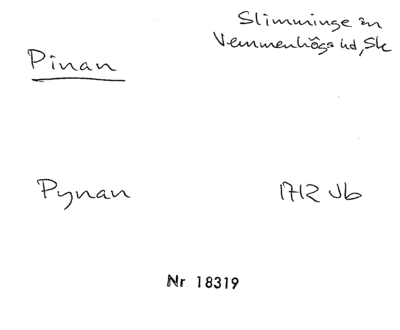 Slimminge sn
Vemmenhögs hd, Sk
Pinan
Pynan 1712 Jb
Nr 18319